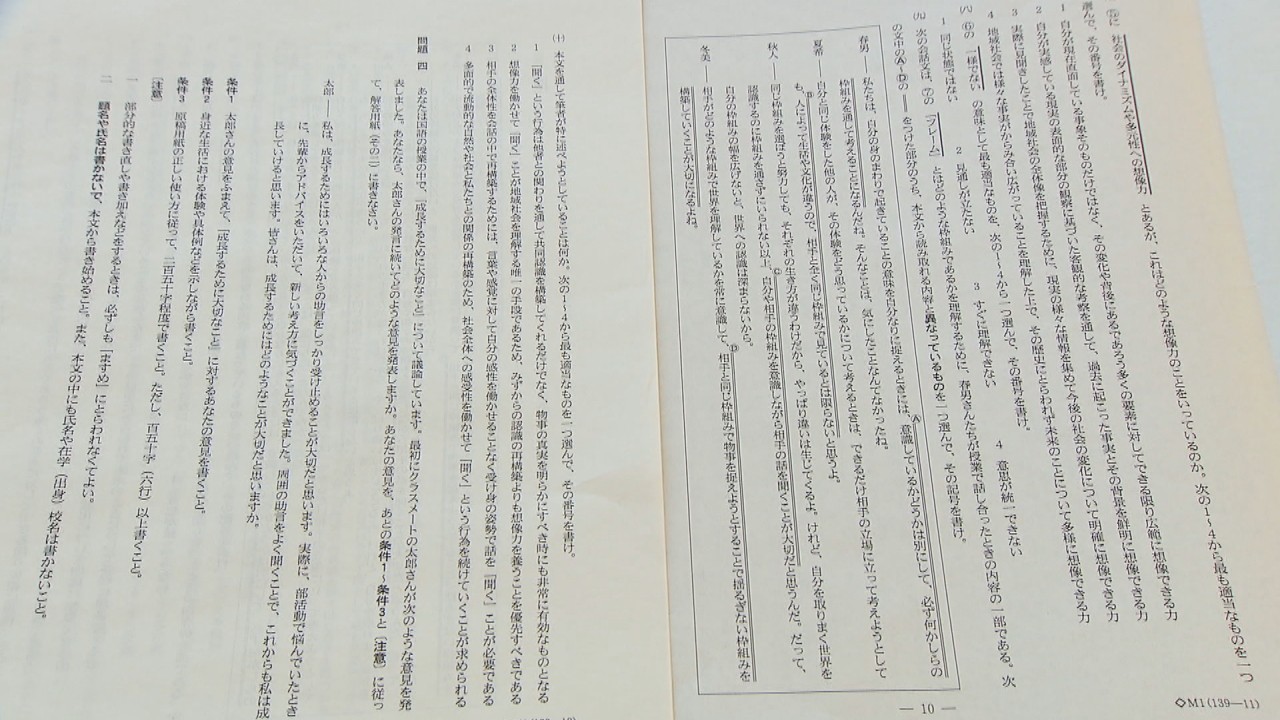 ⑤に 社会のダイナミズムや多元性への想像力 とあるが、これはどのような想像力のことをいっているのか。次の1～4から最も適当なものを一つ
選んで、その番号を書け。
1 自分が現在直面している事象そのものだけではなく、その変化や背後にあるであろう多くの要素に対してできる限り広範に想像できる力
2 自分が実感している現実の表面的な部分の観察に基づいた客観的な考察を通して、過去に起こった事実とその背景を鮮明に想像できる力
3 実際に見聞きしたことで地域社会の全体像を把握するために、現実の様々な情報を集めて今後の社会の変化について明確に想像できる力
4 地域社会では様々な事実がからみ合い広がっていることを理解した上で、その歴史にとらわれず未来のことについて多様に想像できる力
㈧ ⑥の 一様でない の意味として最も適当なものを、次の1～4から一つ選んで、その番号を書け。
1 同じ状態ではない 2 見通しが立たない 3 すぐに理解できない 4 意思が統一できない
㈨ 次の会話文は、⑦の 「フレーム」 とはどのような枠組みであるかを理解するために、春男さんたちが授業で話し合ったときの内容の一部である。次
の文中のⒶ～Ⓓの をつけた部分のうち、本文から読み取れる内容と異なっているものを一つ選んで、その記号を書け。
春男――私たちは、自分の身のまわりで起きていることの意味を自分なりに捉えるときには、Ⓐ意識しているかどうかは別にして、必ず何かしらの
枠組みを通して考えることになるんだね。そんなことは、気にしたことなんてなかったね。
夏希――自分と同じ体験をした他の人が、その体験をどう思っているかについて考えるときは、できるだけ相手の立場に立って考えようとして
も、Ⓑ人によって生活や文化が違うので、相手と全く同じ枠組みで見ているとは限らないと思うよ。
秋人――同じ枠組みを選ぼうと努力しても、それぞれの生き方が違うわけだから、やっぱり違いは生じてくるよ。けれど、自分を取りまく世界を
認識するのに枠組みを通さずにいられない以上、Ⓒ自分や相手の枠組みを意識しながら相手の話を聞くことが大切だと思うんだ。だって、
自分の枠組みの幅を広げないと、世界への認識は深まらないから。
冬美――相手がどのような枠組みで世界を理解しているかを常に意識して、Ⓓ相手と同じ枠組みで物事を捉えようとすることで揺るぎない枠組みを
構築していくことが大切になるよね。
― 10 ―
◇M1(139―11)
㈩ 本文を通して筆者が特に述べようとしていることは何か。次の1～4から最も適当なものを一つ選んで、その番号を書け。
1 「聞く」という行為は他者との関わりを通して共同認識を構築してくれるだけでなく、物事の真実を明らかにすべき時にも非常に有効なものとなる
2 想像力を働かせて「聞く」ことが地域社会を理解する唯一の手段であるため、みずからの認識の再構築よりも想像力を養うことを優先すべきである
3 相手の全体性を会話の中で再構築するためには、言葉や感覚に対して自分の感性を働かせることなく受け身の姿勢で話を「聞く」ことが必要である
4 多面的で流動的な自然や社会と私たちとの関係の再構築のため、社会全体への感受性を働かせて「聞く」という行為を続けていくことが求められる
問題 四 あなたは国語の授業の中で、「成長するために大切なこと」について議論しています。最初にクラスメートの太郎さんが次のような意見を発
表しました。あなたなら、太郎さんの発言に続いてどのような意見を発表しますか。あなたの意見を、あとの条件1～条件3と〔注意〕に従っ
て、解答用紙（その二）に書きなさい。
太郎――私は、成長するためにはいろいろな人からの助言をしっかり受け止めることが大切だと思います。実際に、部活動で悩んでいたとき
に、先輩からアドバイスをいただいて、新しい考え方に気づくことができました。周囲の助言をよく聞くことで、これからも私は成
長していけると思います。皆さんは、成長するためにはどのようなことが大切だと思いますか。
条件1 太郎さんの意見をふまえて、「成長するために大切なこと」に対するあなたの意見を書くこと。
条件2 身近な生活における体験や具体例などを示しながら書くこと。
条件3 原稿用紙の正しい使い方に従って、二百五十字程度で書くこと。ただし、百五十字（六行）以上書くこと。
〔注意〕
一 部分的な書き直しや書き加えなどをするときは、必ずしも「ますめ」にとらわれなくてよい。
二 題名や氏名は書かないで、本文から書き始めること。また、本文の中にも氏名や在学（出身）校名は書かないこと。